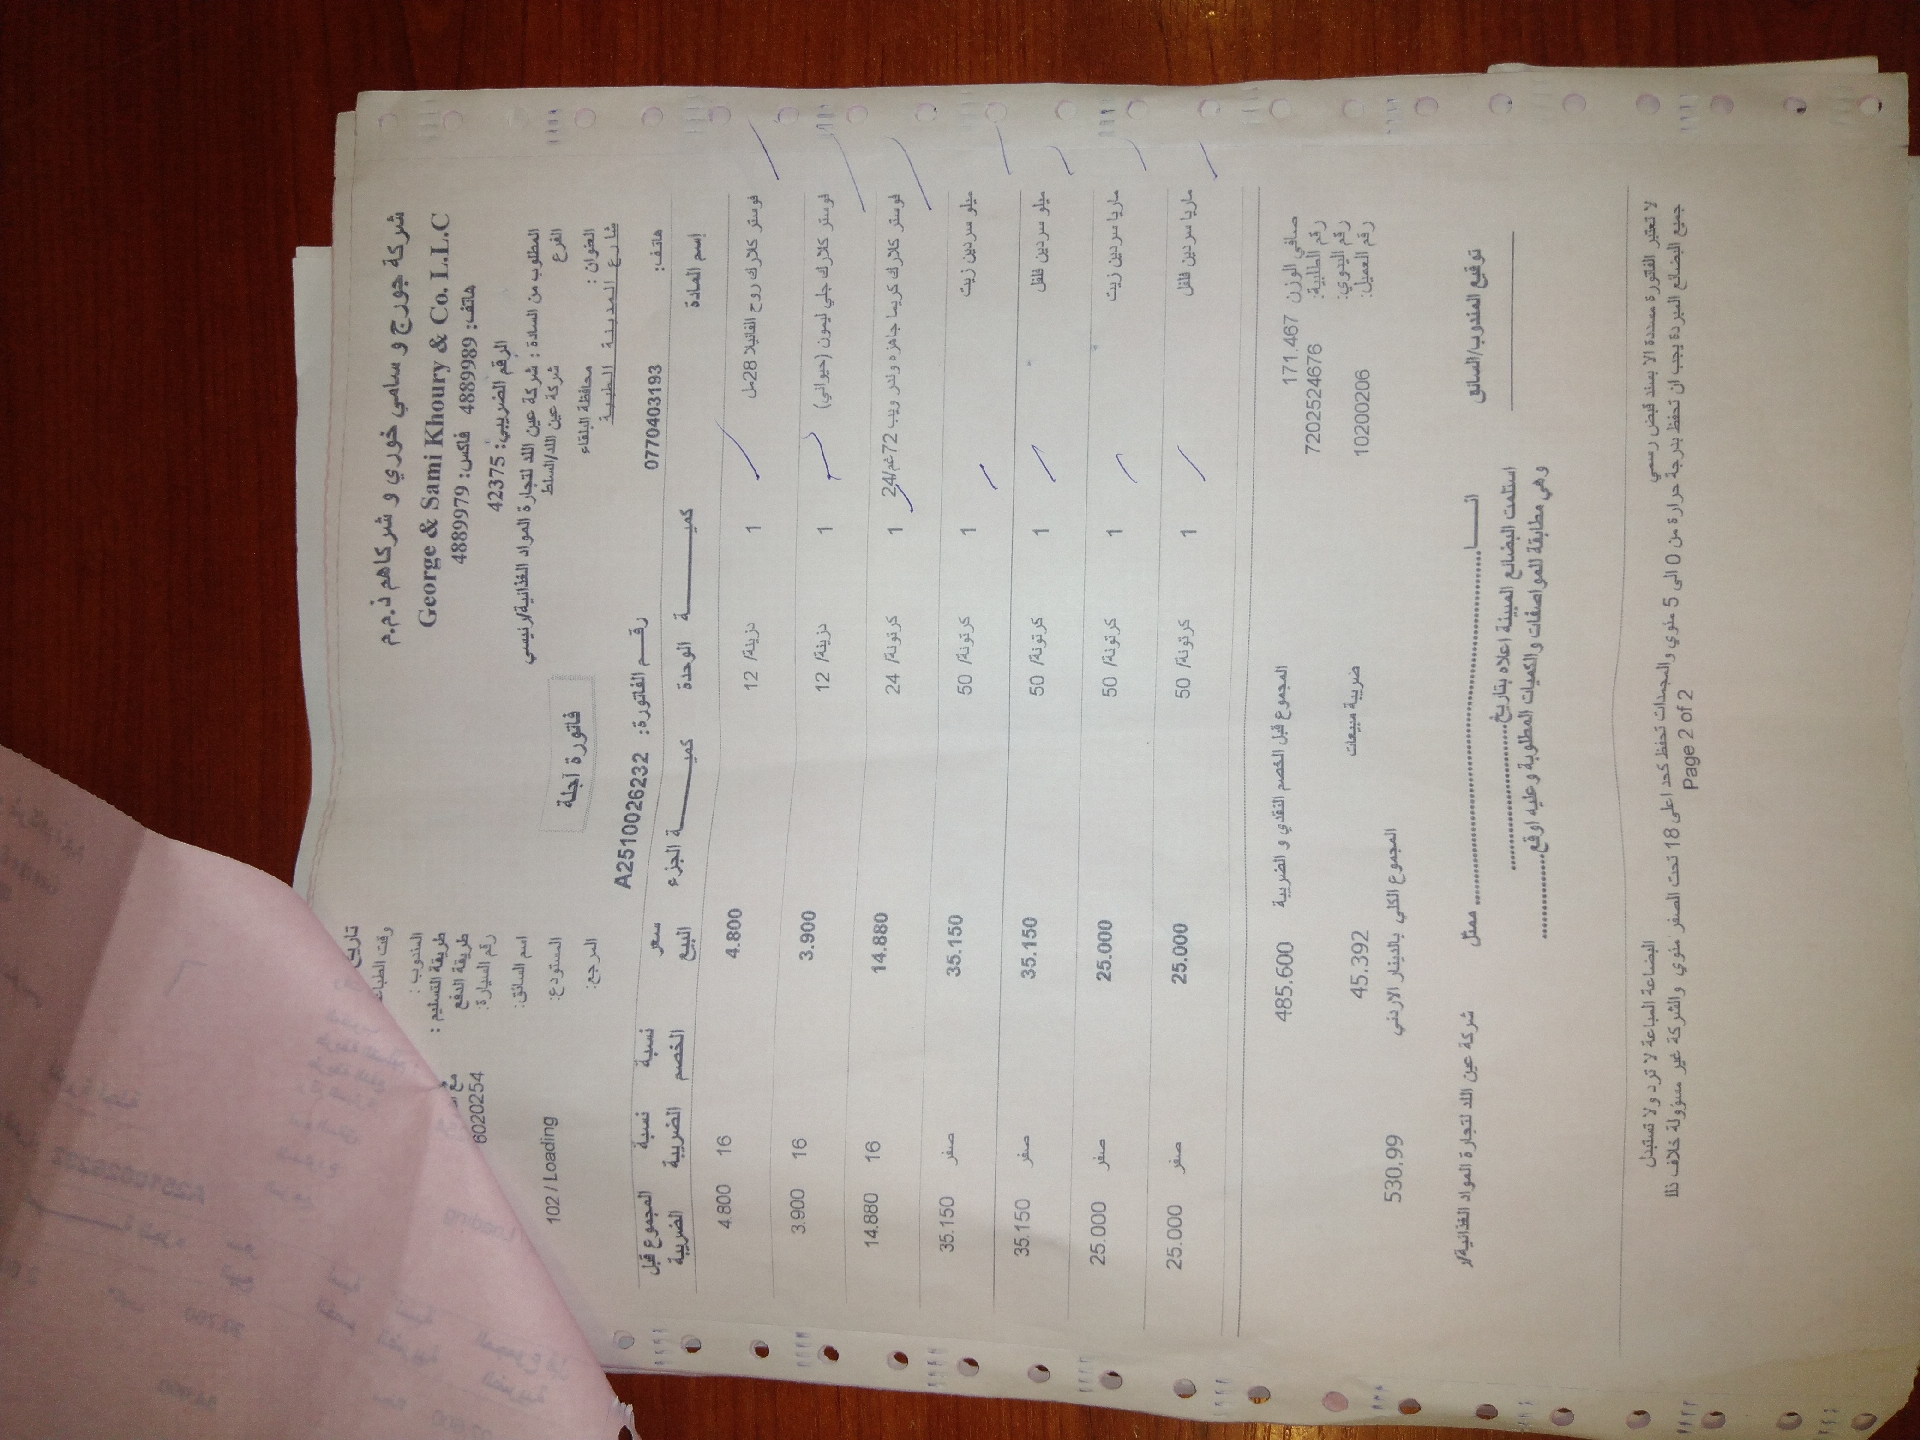 شركة جورج و سامي خوري و شركاهم ذ.م.م
George & Sami Khoury & Co. L.L.C
هاتف: 4889989 فاكس: 4889979
الرقم الضريبي: 42375
تاريخ
وقت الطلبات
المندوب :
طريقة التسليم :
طريقة الدفع
رقم السيارة: 6020254
اسم السائق:
المستودع: 102 / Loading
المرجع:
المطلوب من السادة : شركة عين اللد لتجارة المواد الغذائية/رئيسي
الفرع شركة عين اللد/السلط
فاتورة آجلة
العنوان : محافظة البلقاء
شارع المدينة الطبية
هاتف: 0770403193 رقم الفاتورة: A2510026232
إسم المادة كميـة الوحدة كميـة الجزء سعر البيع نسبة الخصم نسبة الضريبة المجموع قبل الضريبة
فوستر كلارك روح الفانيلا 28مل 1 دزينة/ 12 4.800 16 4.800
فوستر كلارك جلي ليمون (حيواني) 1 دزينة/ 12 3.900 16 3.900
فوستر كلارك كريما جاهزه وندر ويب 72غم/24 1 كرتونة/ 24 14.880 16 14.880
ميلو سردين زيت 1 كرتونة/ 50 35.150 صفر 35.150
ميلو سردين فلفل 1 كرتونة/ 50 35.150 صفر 35.150
ماريا سردين زيت 1 كرتونة/ 50 25.000 صفر 25.000
ماريا سردين فلفل 1 كرتونة/ 50 25.000 صفر 25.000
صافي الوزن 171.467 المجموع قبل الخصم النقدي و الضريبة 485.600
رقم الطلبية: 7202524676
رقم اليدوي:
رقم العميل: 10200206 ضريبة مبيعات 45.392
المجموع الكلي بالدينار الاردني 530.99
توقيع المندوب/السائق انـــا ........ ممثل شركة عين اللد لتجارة المواد الغذائية/ر
استلمت البضائع المبينة اعلاه بتاريخ........
وهي مطابقة للمواصفات والكميات المطلوبة وعليه اوقع........
لا تعتبر الفاتورة مسددة الا بسند قبض رسمي البضاعة المباعة لا ترد ولا تستبدل
جميع البضائع المبردة يجب ان تحفظ بدرجة حرارة من 0 الى 5 مئوي والمجمدات تحفظ كحد اعلى 18 تحت الصفر مئوي والشركة غير مسؤولة خلاف ذلك
Page 2 of 2